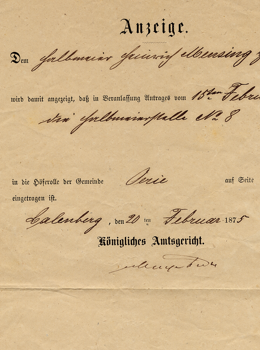 Anzeige.
Dem Halbmeier Heinrich Mensing z
wird damit angezeigt, daß in Veranlassung Antrages vom 15ten Febru
die Halbmeierstelle No 8
in die Höferolle der Gemeinde auf Seite
eingetragen ist.
Calenberg, den 20ten Februar 1875
Königliches Amtsgericht.